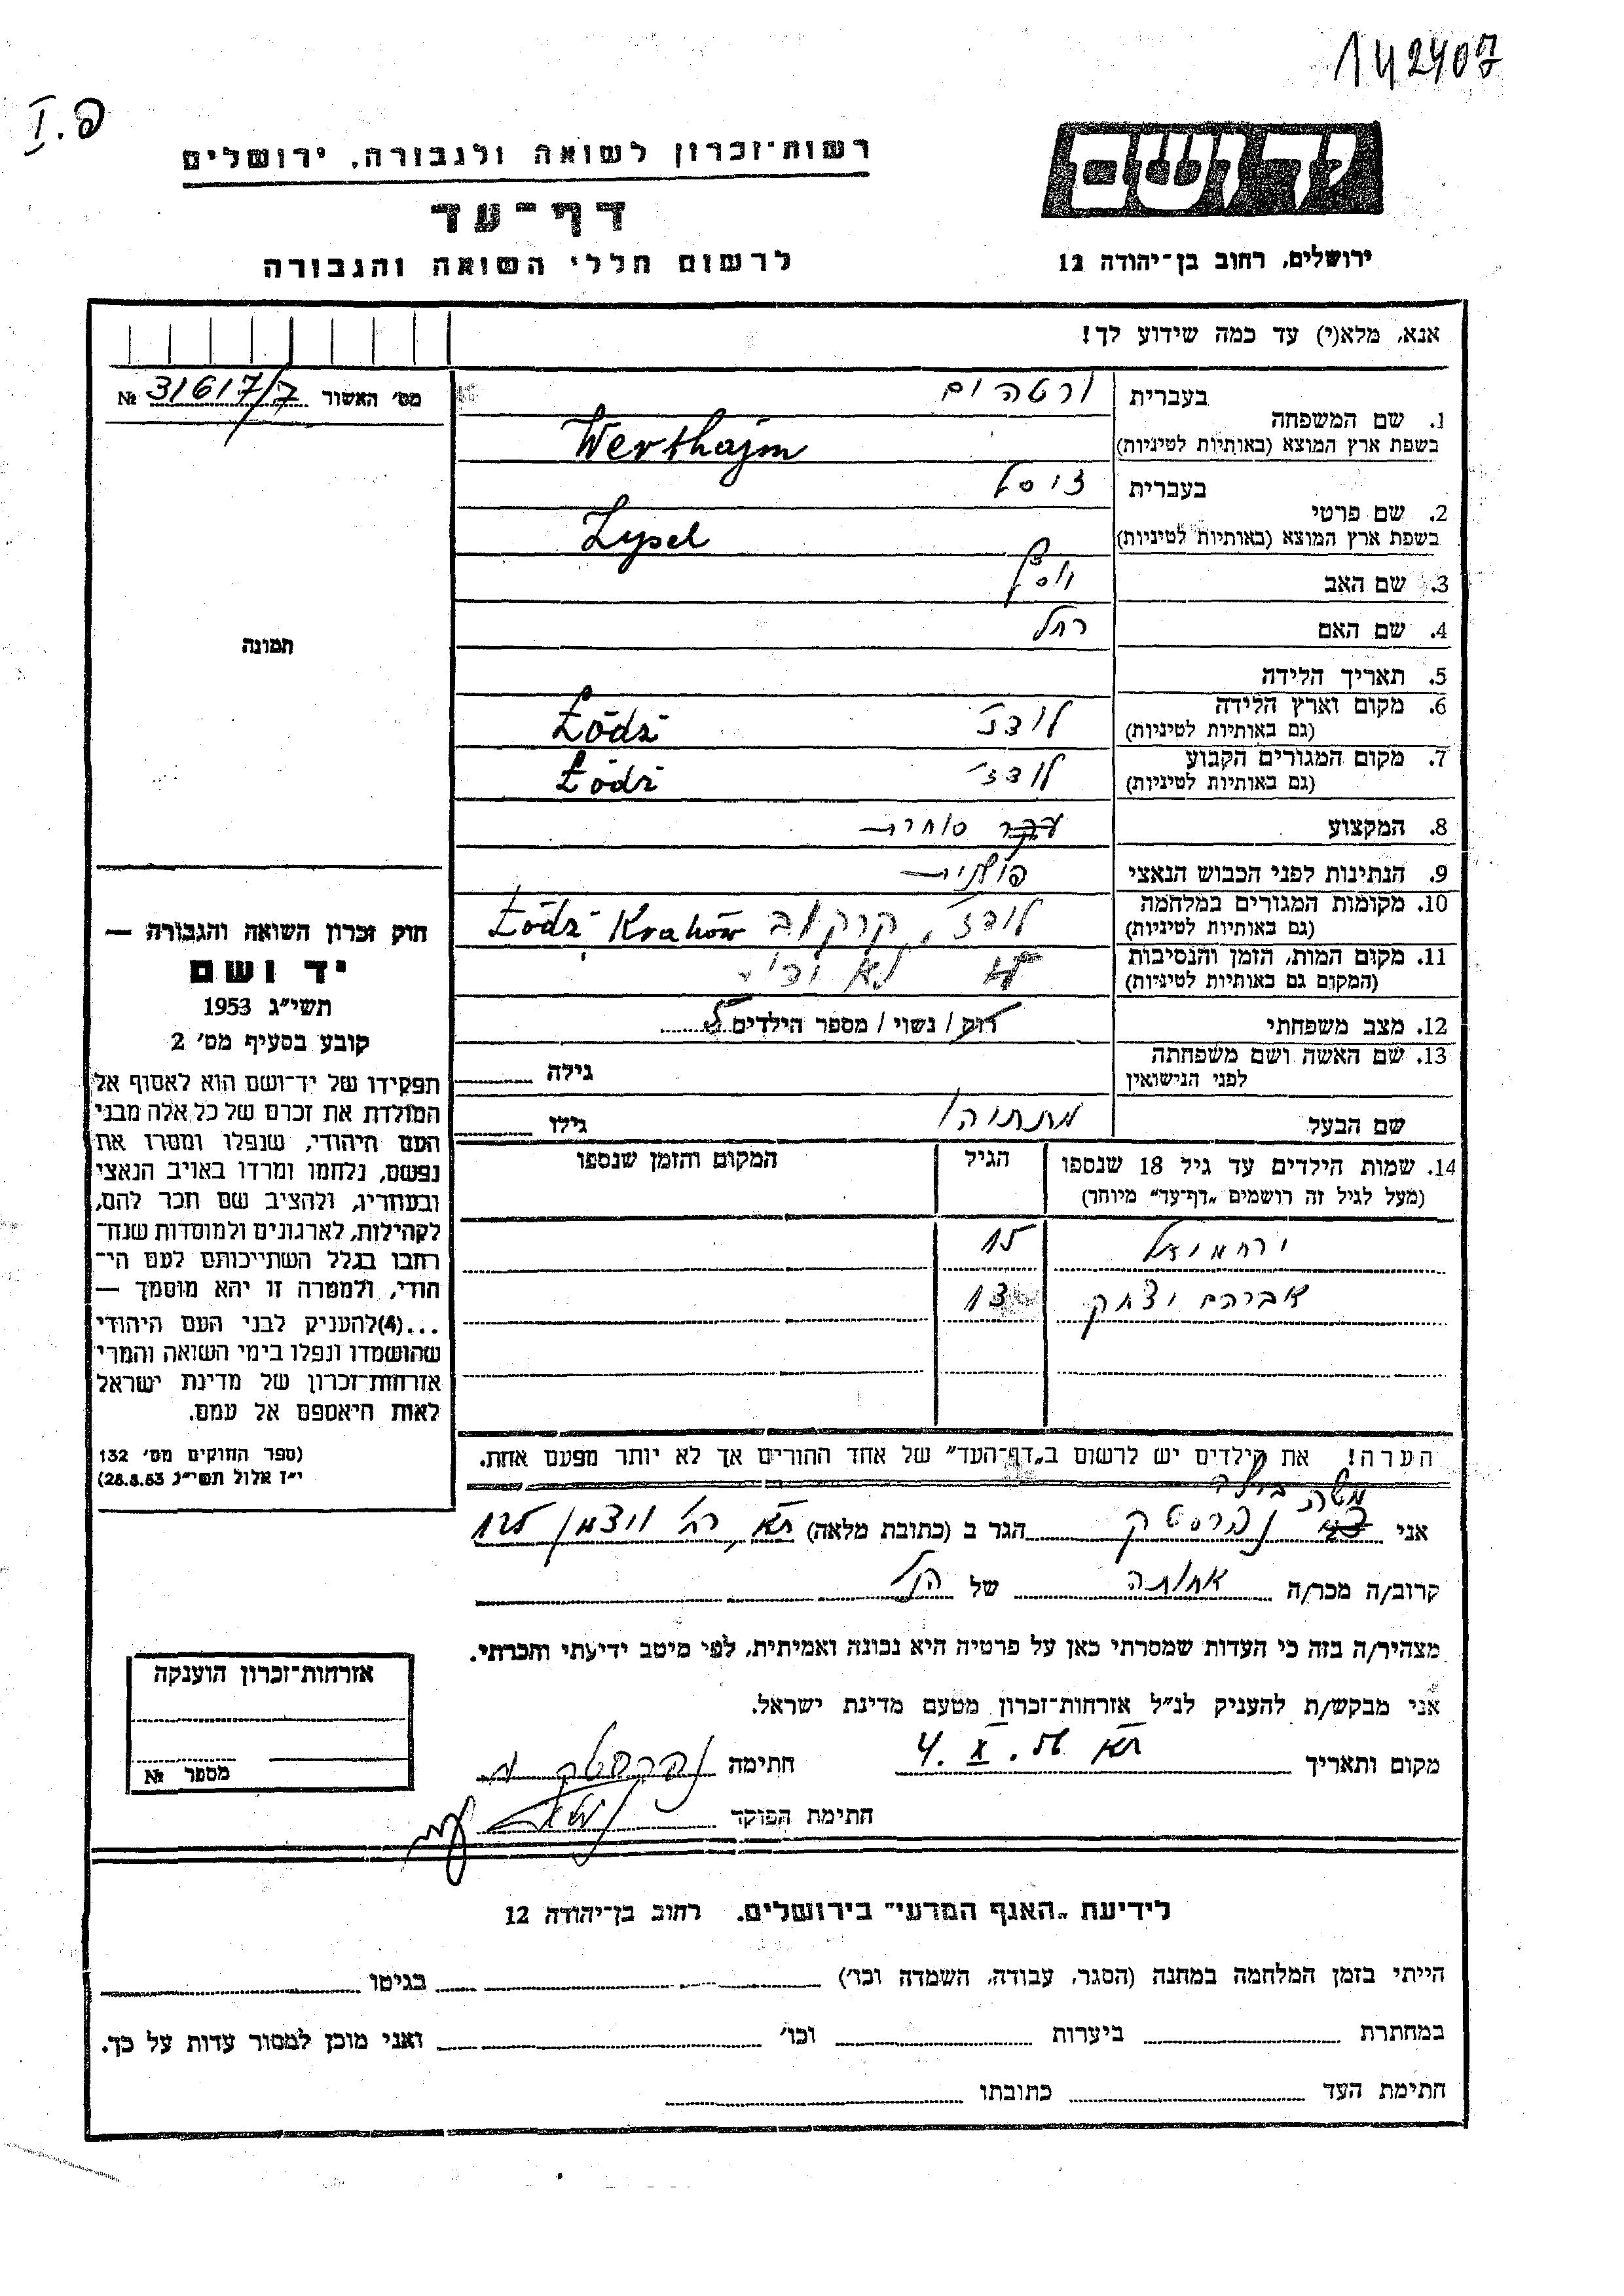 142407
I.פ
ידושם
רשות־זכרון לשואה ולגבורה, ירושלים
דף־עד
ירושלים, רחוב בן־יהודה 12
לרשום חללי השואה והגבורה
אנא, מלא(י) עד כמה שידוע לך!
מס׳ האשור 31617/7 №
1. שם המשפחה בעברית ורטהים
בשפת ארץ המוצא (באותיות לטיניות) Werthajm
2. שם פרטי בעברית זוסל
בשפת ארץ המוצא (באותיות לטיניות) Zysel
3. שם האב
4. שם האם רחל
תמונה
5. תאריך הלידה
6. מקום וארץ הלידה לודז׳ Łódź
(גם באותיות לטיניות)
7. מקום המגורים הקבוע לודז׳ Łódź
(גם באותיות לטיניות)
8. המקצוע סוחרת
9. הנתינות לפני הכבוש הנאצי פולנית
10. מקומות המגורים במלחמה לודז׳, קרקוב Łódź Kraków
(גם באותיות לטיניות)
11. מקום המות, הזמן והנסיבות לא ידוע
(המקום גם באותיות לטיניות)
12. מצב משפחתי רוק / נשוי / מספר הילדים
13. שם האשה ושם משפחתה גילה
לפני הנישואין
שם הבעל מתתיהו גילו
14. שמות הילדים עד גיל 18 שנספו הגיל המקום והזמן שנספו
(מעל לגיל זה רושמים „דף־עד״ מיוחד)
ירחמיאל 15
אברהם יצחק 13
הערה! את הילדים יש לרשום ב„דף־העד״ של אחד ההורים אך לא יותר מפעם אחת.
חוק זכרון השואה והגבורה —
יד ושם
תשי״ג 1953
קובע בסעיף מס׳ 2
תפקידו של יד־ושם הוא לאסוף אל
המולדת את זכרם של כל אלה מבני
העם היהודי, שנפלו ומסרו את
נפשם, נלחמו ומרדו באויב הנאצי
ובעוזריו, ולהציב שם וזכר להם,
לקהילות, לארגונים ולמוסדות שנח־
רבו בגלל השתייכותם לעם הי־
הודי, ולמטרה זו יהא מוסמך —
...(4)להעניק לבני העם היהודי
שהושמדו ונפלו בימי השואה והמרי
אזרחות־זכרון של מדינת ישראל
לאות היאספם אל עמם.
(ספר החוקים מס׳ 132
י״ז אלול תשי״ג 28.8.53)
אני הגר ב (כתובת מלאה) ת״א
קרוב/ה מכר/ה אחותה של הנ״ל
מצהיר/ה בזה כי העדות שמסרתי כאן על פרטיה היא נכונה ואמיתית, לפי מיטב ידיעתי והכרתי.
אני מבקש/ת להעניק לנ״ל אזרחות־זכרון מטעם מדינת ישראל.
מקום ותאריך ת״א 4. X. 56 חתימה
חתימת הפוקד
אזרחות־זכרון הוענקה
מספר №
לידיעת „האגף המדעי״ בירושלים, רחוב בן־יהודה 12
הייתי בזמן המלחמה במחנה (הסגר, עבודה, השמדה וכו׳) בגיטו
במחתרת ביערות וכו׳ ואני מוכן למסור עדות על כך.
חתימת העד כתובתו